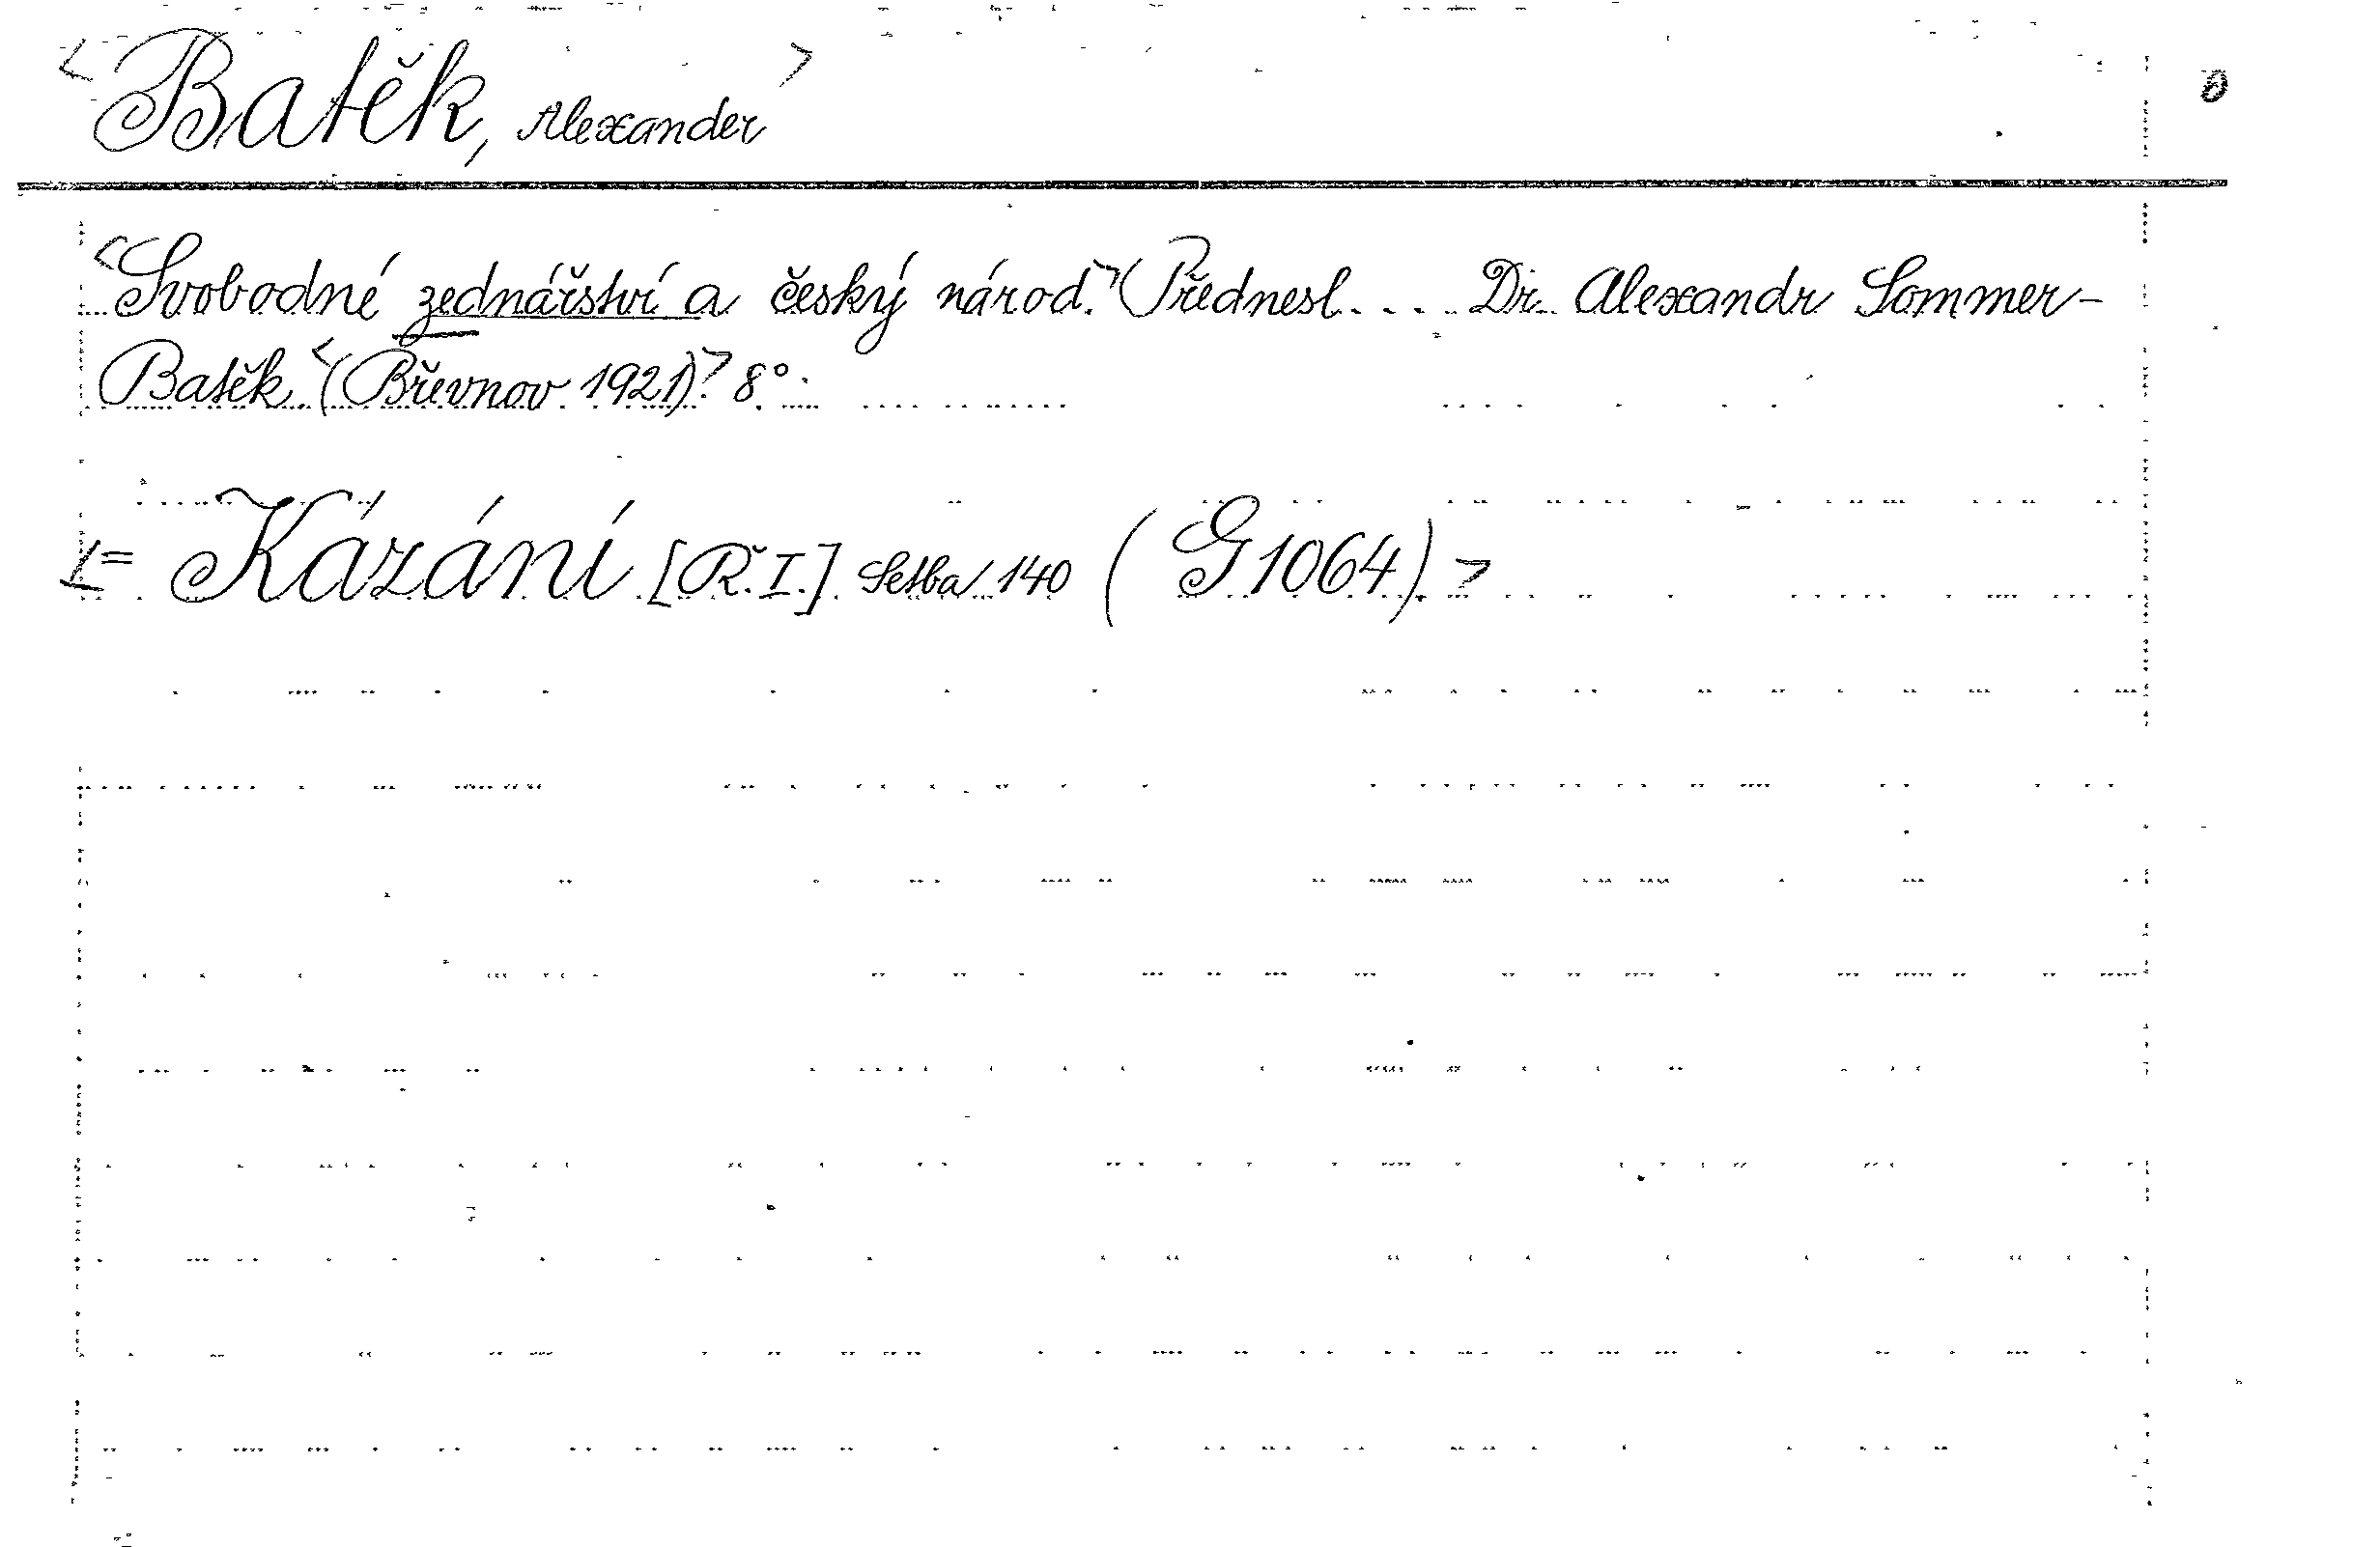 <Batěk, Alexander>
0
<Svobodné zednářství a český národ.> Přednesl.... Dr. Alexandr Sommer-
Batěk. <(Břevnov 1921)>. 8°.
<= Kázání [Ř.I.] Setba 140 (G 1064).>